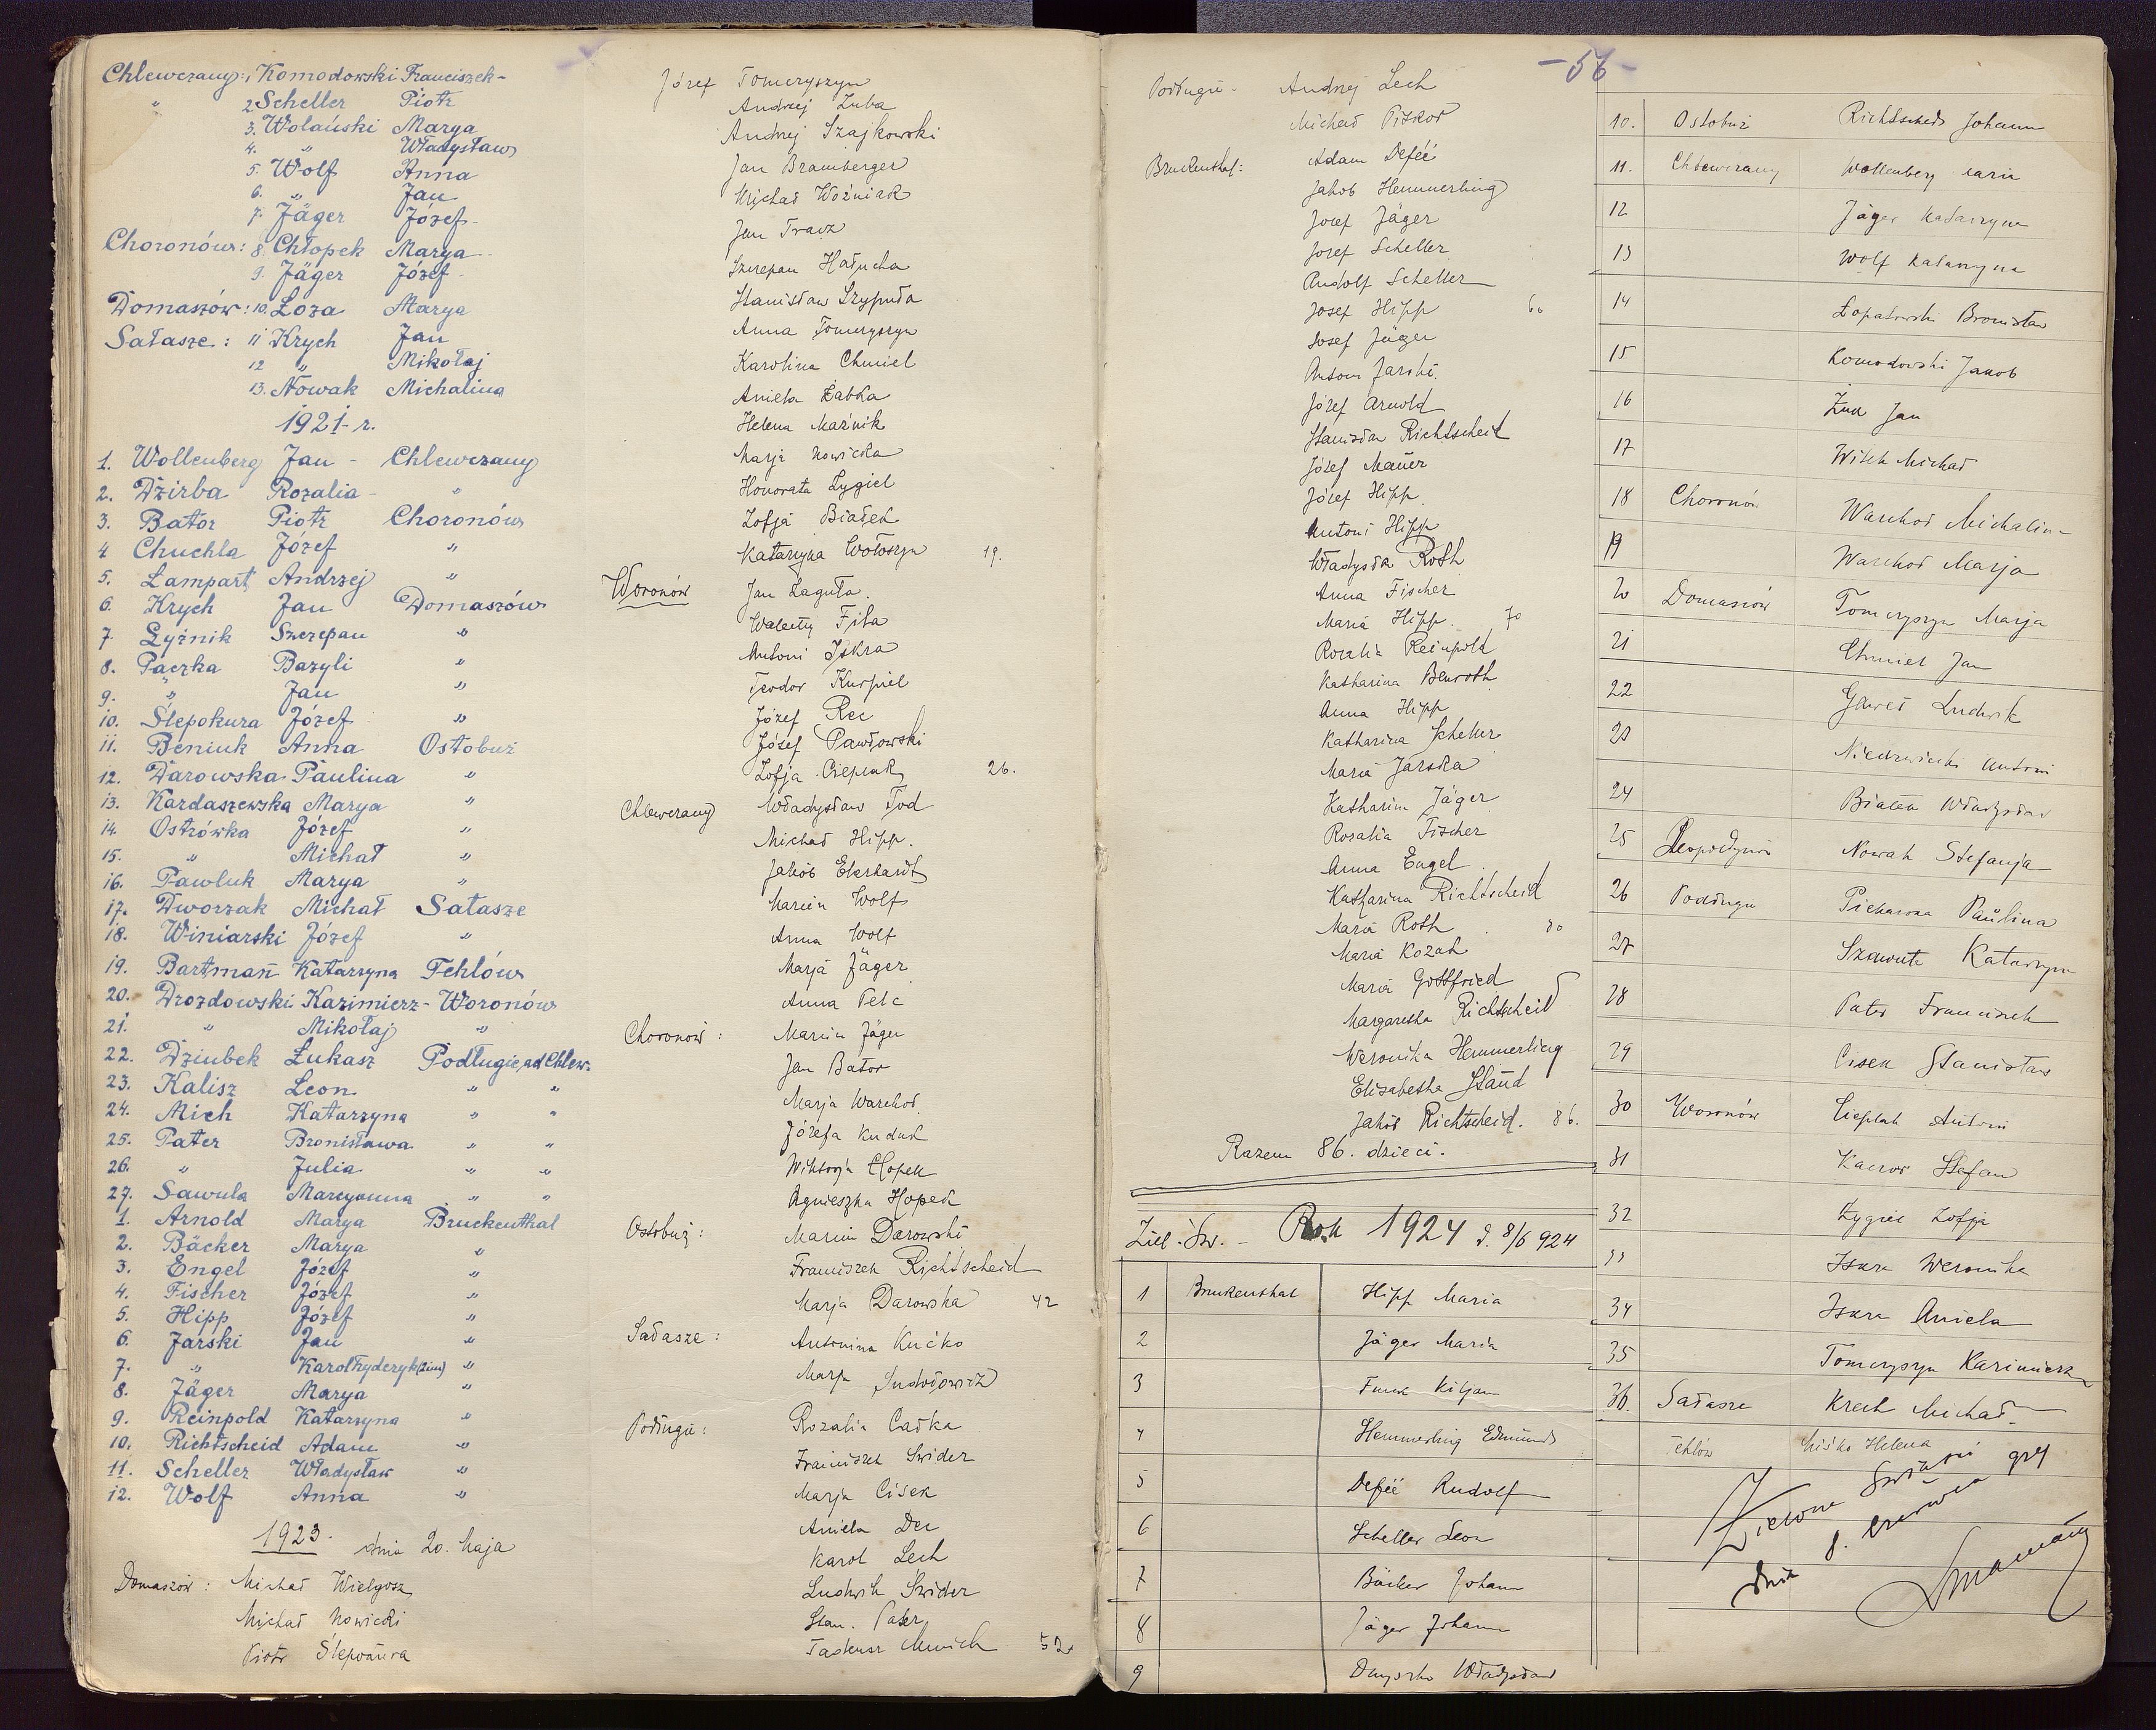 Chlewczany: 1. Komodowski Franciszek -
" 2. Scheller Piotr
3. Wolański Marya
4. " Władysław
5. Wolf Anna
6. " Jan
7. Jäger Józef -
Choronów: 8. Chłopek Marya -
9. Jäger Józef -
Domaszów: 10. Łoza Marya
Sałasze: 11 Krych Jan
12 " Mikołaj
13. Nowak Michalina
1921 - r.
1. Wollenberg Jan - Chlewczany
2. Dzirba Rozalia - "
3. Bator Piotr Choronów
4 Chuchla Józef "
5. Lampart Andrzej "
6. Krych Jan Domaszów
7. Łyźnik Szczepan "
8. Paczka Bazyli "
9. " Jan "
10. Ślepokura Józef "
11. Beniuk Anna Ostobuż
12. Darowska Paulina "
13. Kardaszewska Marya "
14. Ostrówka Józef "
15. " Michał "
16. Pawluk Marya "
17. Dworzak Michał Sałasze
18. Winiarski Józef "
19. Bartman Katarzyna Tehlów
20. Drozdowski Kazimierz - Woronów
21. " Mikołaj "
22. Dziubek Łukasz Podługie, ad Chlew.
23. Kalisz Leon " "
24. Mich Katarzyna " "
25. Pater Bronisława " "
26. " Julia " "
27. Sawula Maryanna " "
1. Arnold Marya Bruckenthal
2. Bäcker Marya "
3. Engel Józef "
4. Fischer Józef "
5. Hipp Józef "
6. Jarski Jan "
7. " Karol Fryderyk (2 im) "
8. Jäger Marya "
9. Reinpold Katarzyna "
10. Richtscheid Adam "
11. Scheller Władysław "
12. Wolf Anna "
1923. dnia 20. Maja
Domaszów: Michał Wielgosz
Michał Nowicki
Piotr Ślepokura
Józef Tomczyszyn
Andrzej Zuba
Andrzej Szajkowski
Jan Bramberger
Michał Woźniak
Jan Tracz
Szczepan Hałucha
Stanisław Szypuła
Anna Tomczyszyn
Karolina Chmiel
Aniela Żabka
Helena Maźnik
Marja Nowicka
Honorata Łygiel
Zofja Białek
Katarzyna Wołoszyn 19.
Woronów Jan Zaguła.
Walenty Fila
Antoni Iskra
Teodor Kurpiel
Józef Rec
Józef Pawłowski
Zofja Cieplak 26.
Chlewczany Władysław Tod
Michał Hipp.
Jakób Ekhardt
Marcin Wolf
Anna Wolf
Marja Jäger
Anna Pelc
Choronów: Marcin Jäger
Jan Bator
Marja Warchoł.
Józefa Kuduk
Wiktorja Chopek
Agnieszka Hopek
Ostobuż: Marcin Darowski
Franciszek Richtscheid
Marja Darowska 42
Sałasze: Antonina Kućko
Marja
Podługie: Rozalia Całka
Franciszek Świder
Marja Cisek
Aniela Dec
Karol Lech
Ludwik Świder
Stan. Pater
Tadeusz 52.
- 56 -
Podługie - Andrzej Lech
Michał Piskor
Bruckenthal: Adam Defeé
Jakob Hemmerling
Josef Jäger
Josef Scheller
Rudolf Scheller
Josef Hipp 60
Josef Jäger
Antoni Jarski.
Józef Arnold
Stanisław Richtscheid
Józef Mauer
Józef Hipp.
Antoni Hipp
Władysła Roth
Anna Fischer
Maria Hipp. 70
Rozalia Reinpold
Katharina Benroth
Anna Hipp
Katharina Scheller
Maria Jarska
Katharina Jäger
Rosalia Fischer
Anna Engel.
Katharina Richtscheid
Maria Roth. 80
Maria Kozak
Maria Gottfried
Margaretha Richtscheid
Weronika Hemmerling
Elisabetha Staud
Jakób Richtscheid. 86.
Razem 86. dzieci.
Ziel. Św. - Rok 1924 d. 8/6 924
1 Brukenthal Hipp Maria
2 Jäger Maria
3 Funk Kiljan
4 Hemmerling Edmund
5 Defeé Rudolf
6 Scheller Leon
7 Bäcker Johann
8 Jäger Johann
9 Dmyszko Władysław
10. Ostobuż Richtscheid Johann
11. Chlewczany Wollenberg Maria
12 Jäger Katarzyna
13 Wolf Katarzyna
14 Łopatowski Bronisław
15 Komodowski Jakob
16 Żuk Jan
17 Witek Michał
18 Choronów Warchoł Michalin-
19 Warchoł Marja
20 Domaszów Tomczyszyn Marja
21 Chmiel Jan
22 Gaweł Ludwik
23 Niedzwiecki Antoni
24 Białek Władysław
25 Leopoldynów Nowak Stefanja
26 Podługie Piekarska Paulina
27 Katarzyna
28 Pater Franciszek
29 Cisek Stanisław
30 Woronów Cieplak Antoni
31 Kaczor Stefan
32 Łygiel Zofja
33 Iskra Weronika
34 Iskra Aniela
35 Tomczyszyn Kazimierz
36. Sałasze Krech Michał -
Tehlów Miśko Helena
Zielone Świątki
dnia 8. czerwca 924